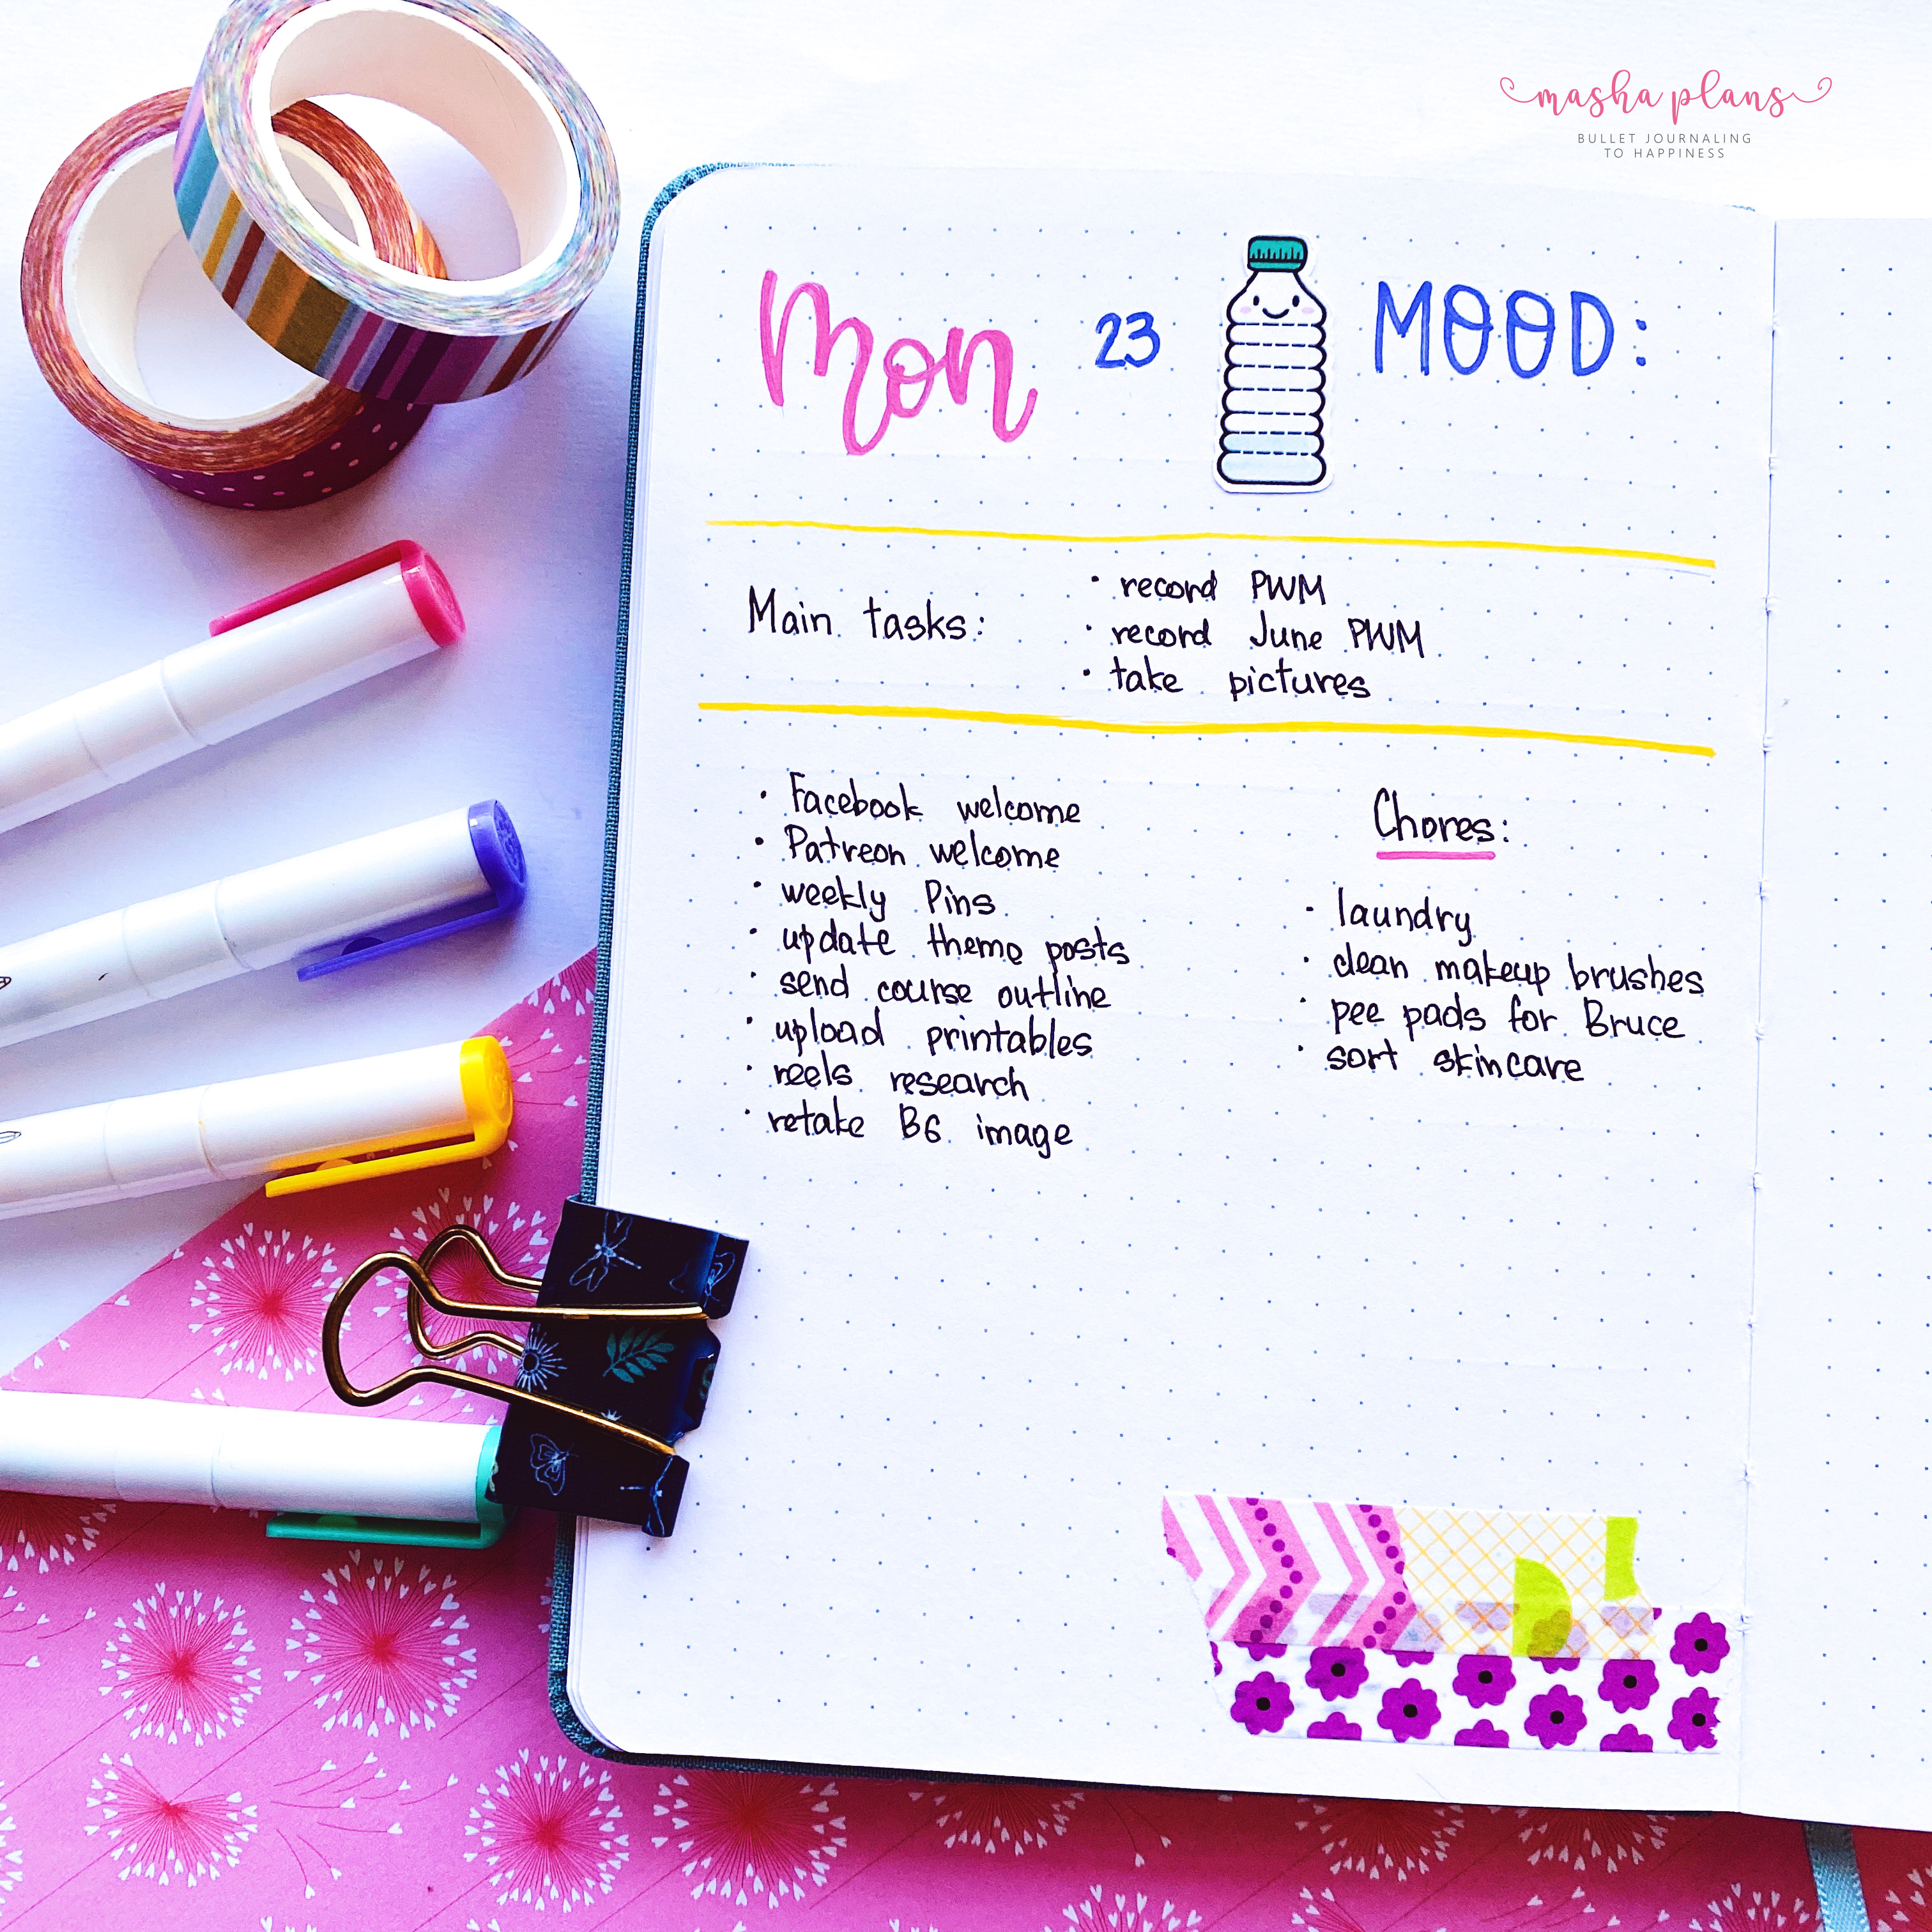 masha plans
BULLET JOURNALING
TO HAPPINESS
Mon 23 MOOD:
Main tasks:
• record PWM
• record June PWM
• take pictures
• Facebook welcome
• Patreon welcome
• weekly Pins
• update theme posts
• send course outline
• upload printables
• reels research
• retake B6 image
Chores:
• laundry
• clean makeup brushes
• pee pads for Bruce
• sort skincare